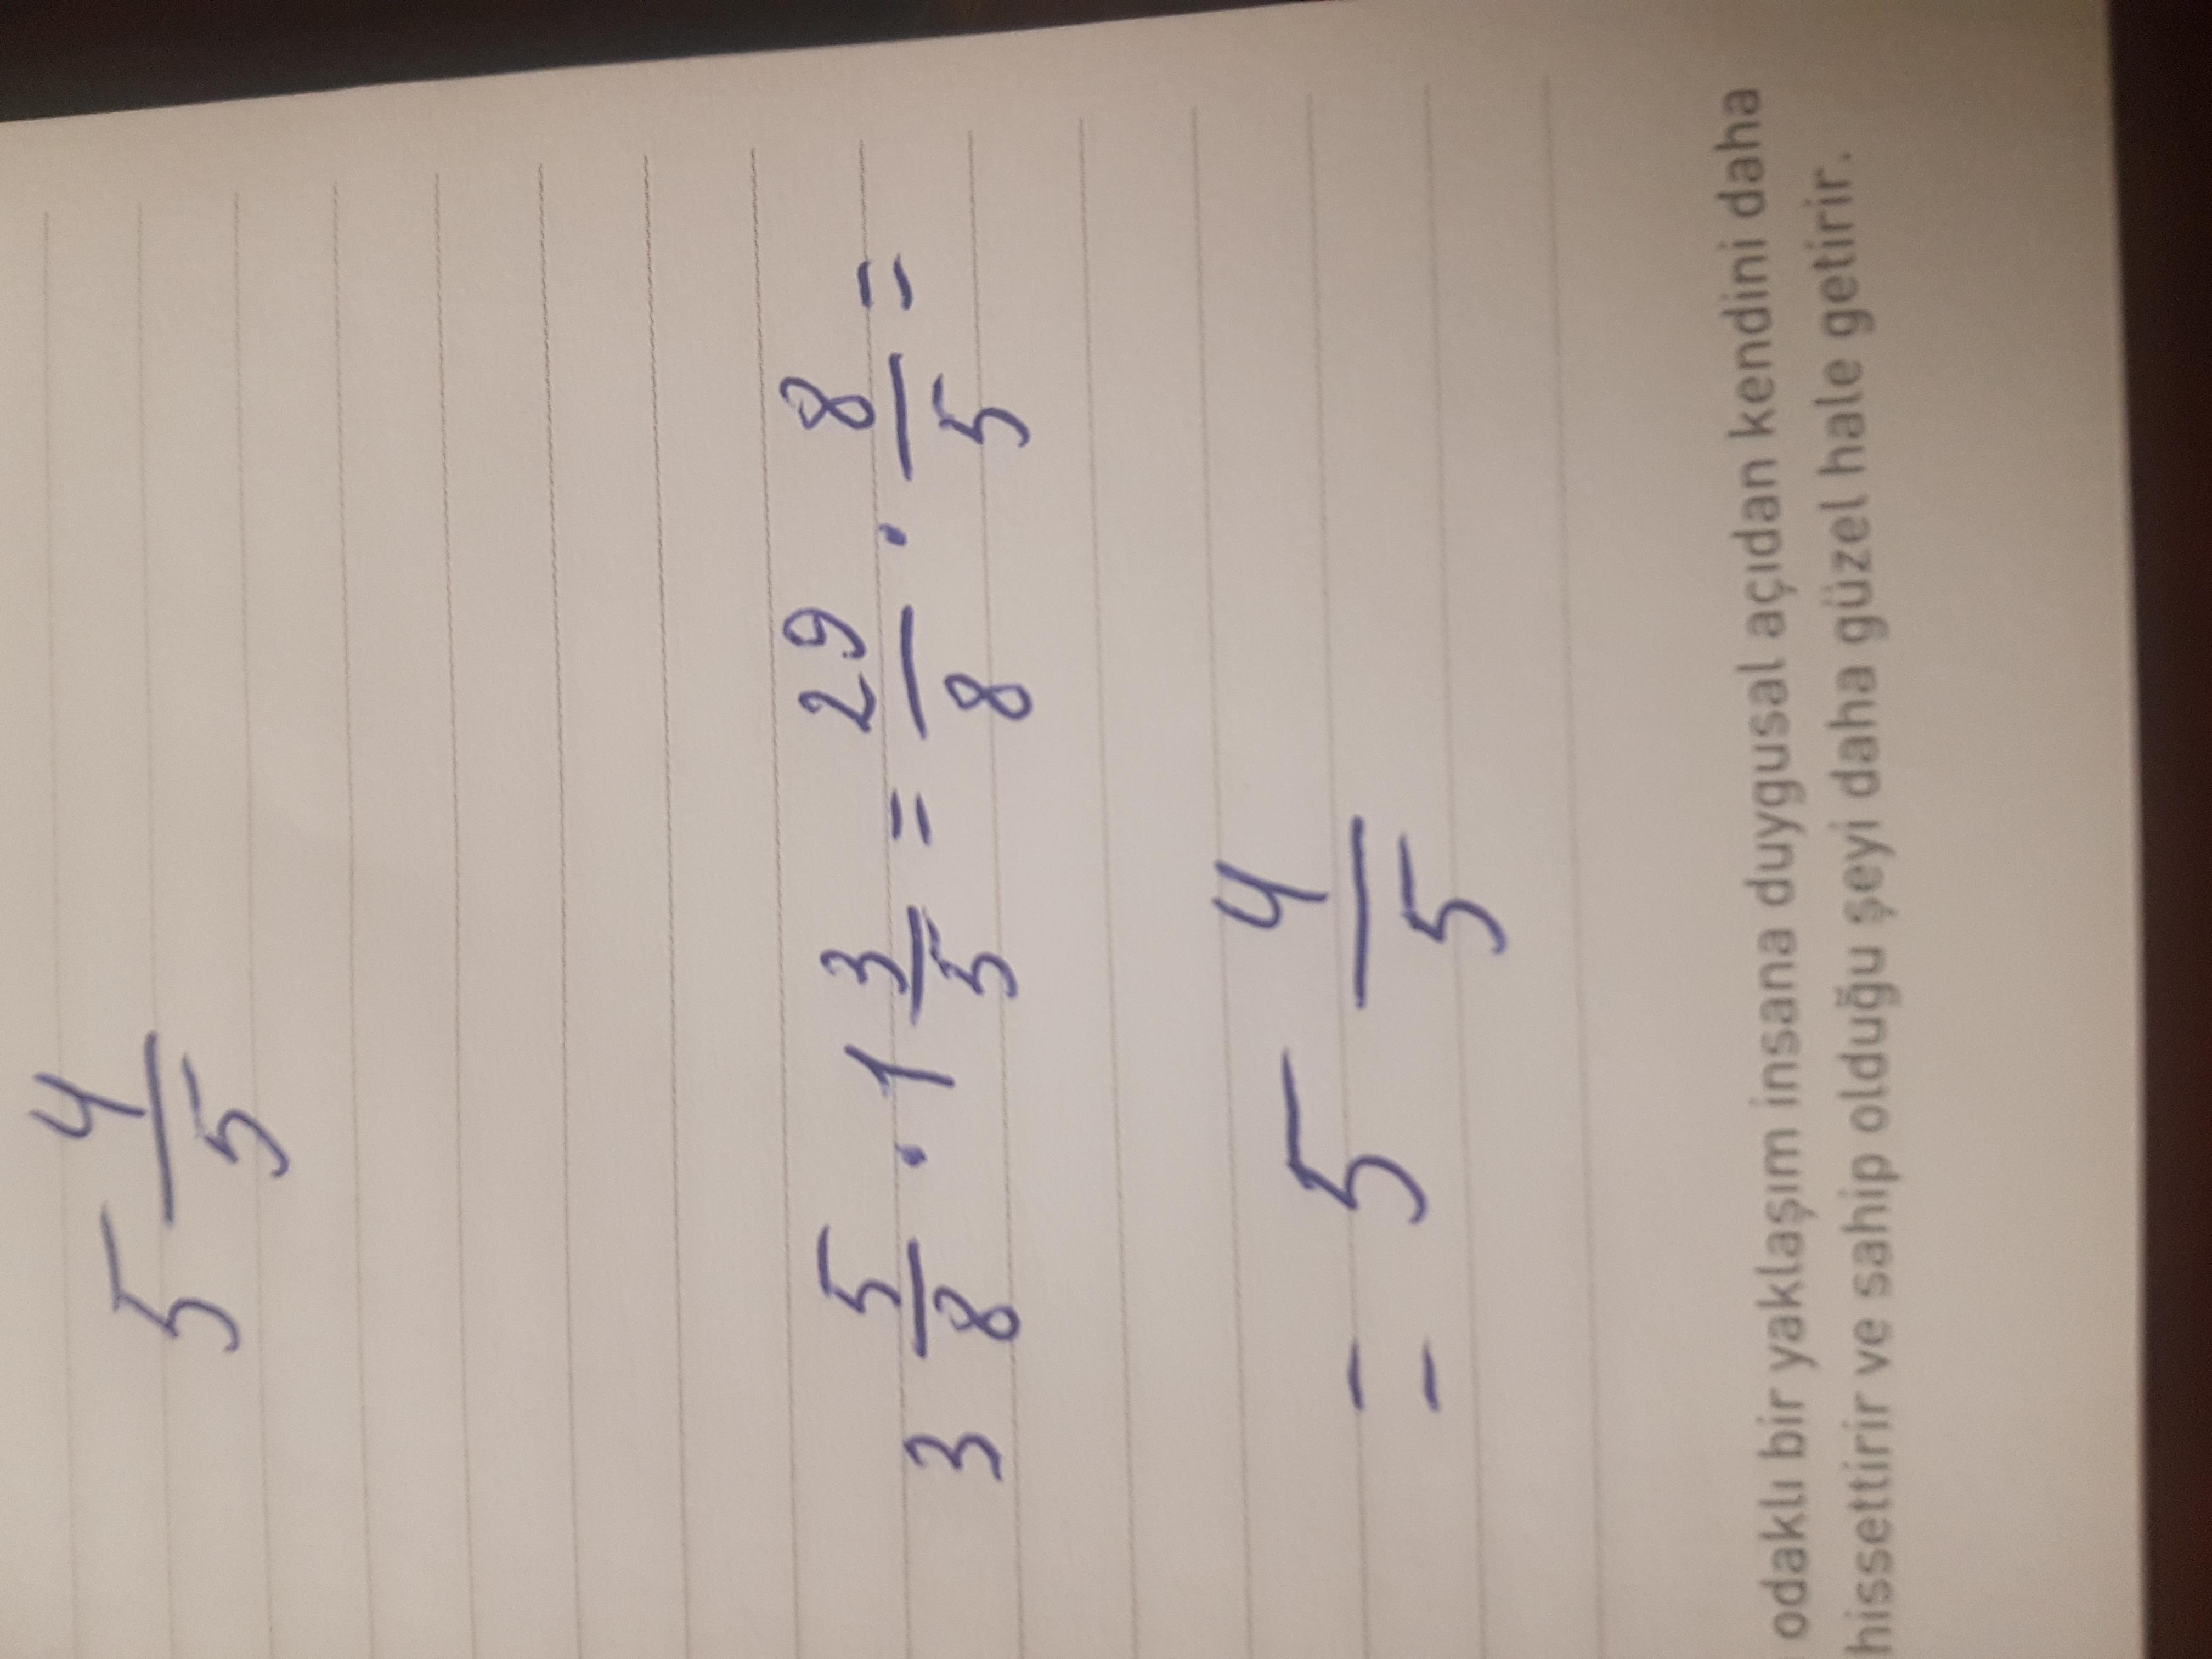 5 4/5
3 5/8 · 1 3/5 = 29/8 · 8/5 =
= 5 4/5
odaklı bir yaklaşım insana duygusal açıdan kendini daha
hissettirir ve sahip olduğu şeyi daha güzel hale getirir.